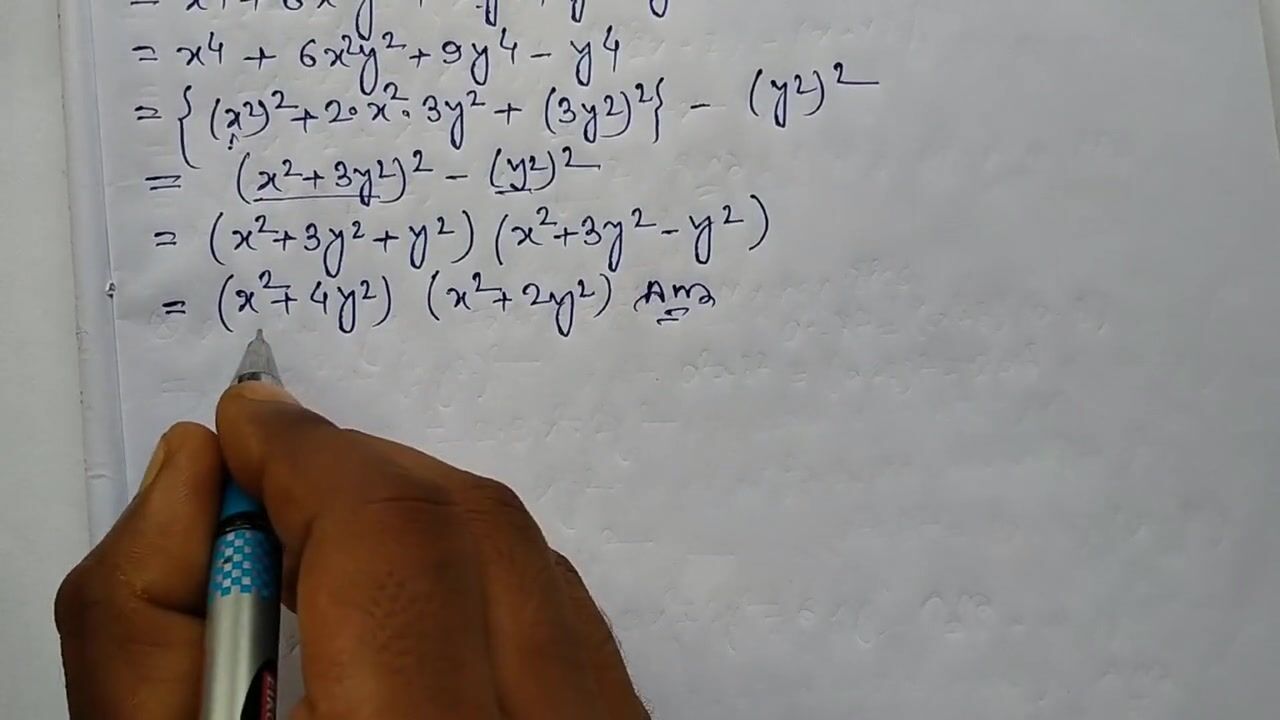 = x⁴ + 6x²y² + 9y⁴ - y⁴
= {(x²)² + 2·x²·3y² + (3y²)²} - (y²)²
= (x² + 3y²)² - (y²)²
= (x² + 3y² + y²) (x² + 3y² - y²)
= (x² + 4y²) (x² + 2y²) Ans